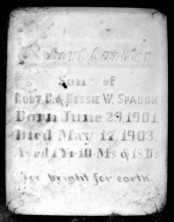 Son of
Ruby C. & Bessie W. Spaugh
Born June 29, 1901
Died May 17, 1903
Aged 1 Yr 10 Ms & 18 Ds
Too bright for earth.